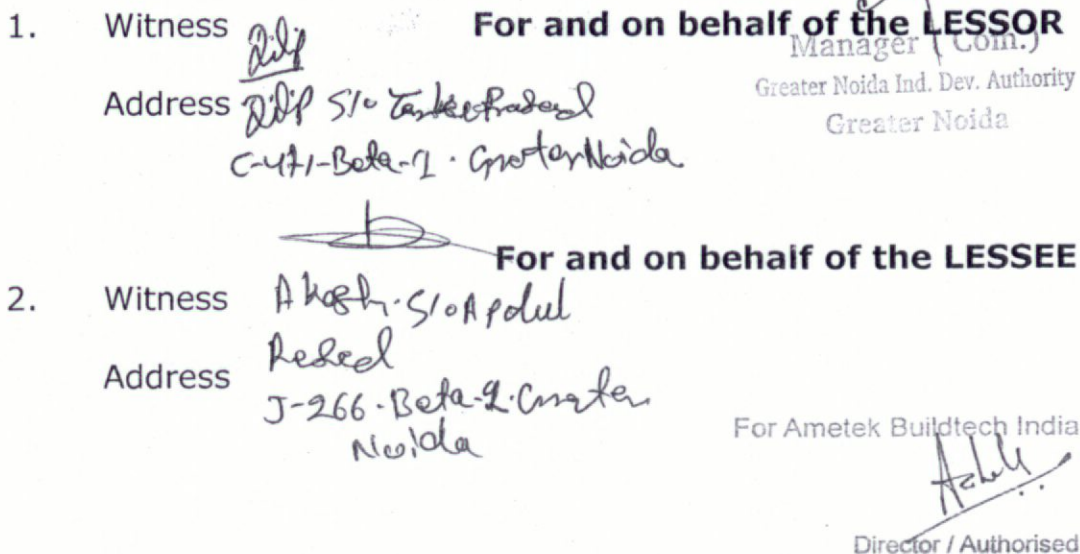 1. Witness Dilip For and on behalf of the LESSOR
Manager (Com.)
Address Dilip S/o Greater Noida Ind. Dev. Authority
Greater Noida
C-471-Beta-1. Greater Noida
For and on behalf of the LESSEE
2. Witness Akash. S/o
Address
J-266-Beta-2. Greater
Noida
For Ametek Buildtech India
Director / Authorised